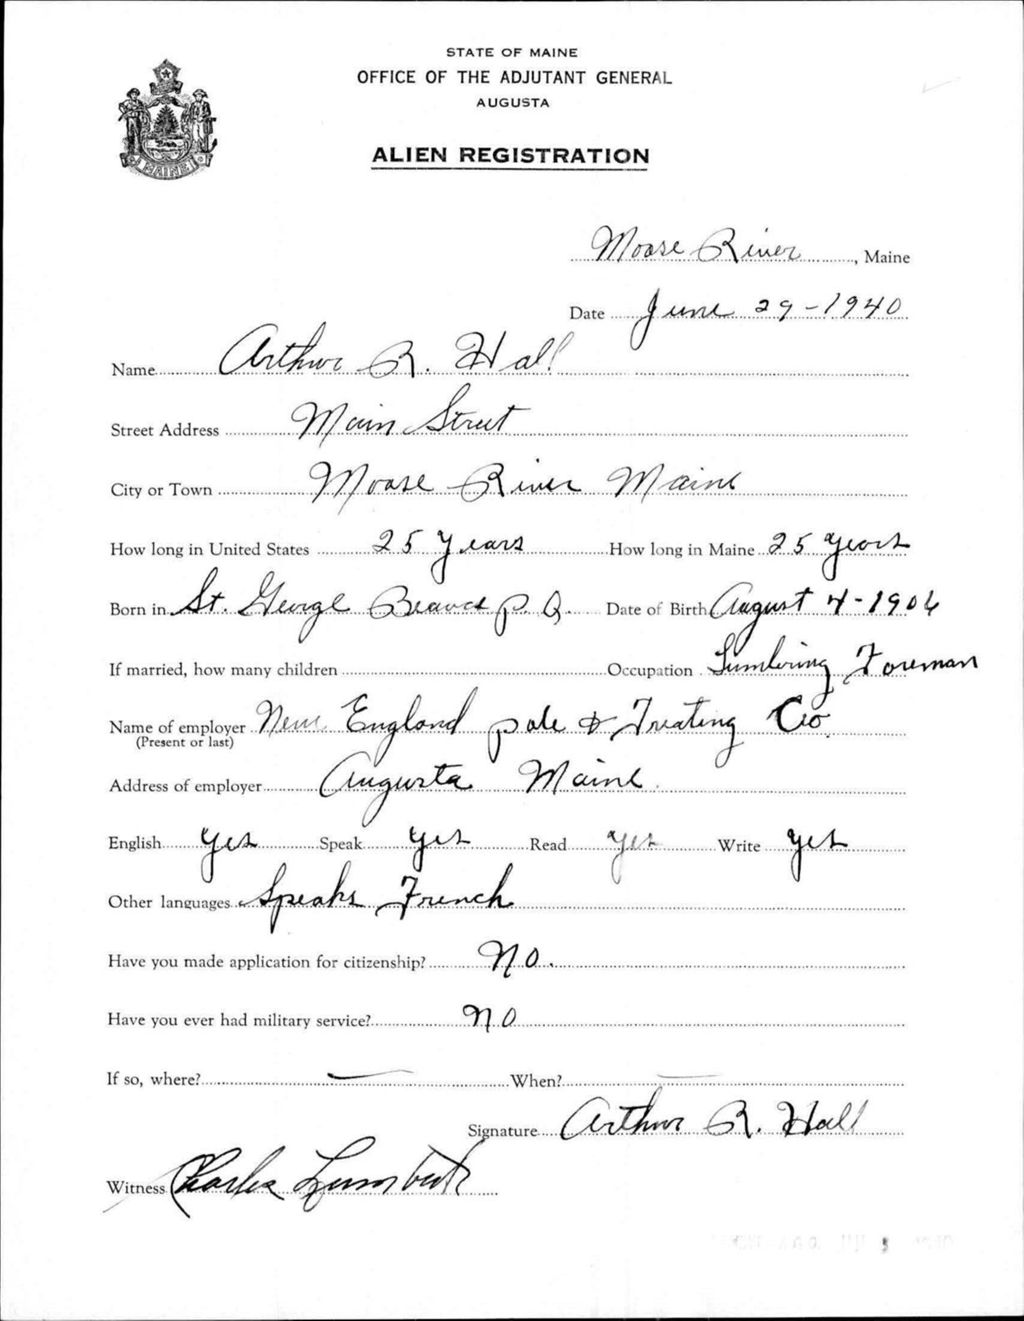 STATE OF MAINE
OFFICE OF THE ADJUTANT GENERAL
AUGUSTA
ALIEN REGISTRATION
MAINE
Moose River, Maine
Date June 29-1940
Name Arthur R. Hall
Street Address Main Street
City or Town Moose River Maine
How long in United States 25 Years How long in Maine 25 years
Born in St. George Beauce P.Q. Date of Birth August 4-1906
If married, how many children Occupation Lumbering Foreman
Name of employer New England pole & Treating Co.
(Present or last)
Address of employer Augusta Maine.
English yes Speak yes Read yes Write yes
Other languages Speaks French
Have you made application for citizenship? No.
Have you ever had military service? No
If so, where? — When? —
Signature Arthur R. Hall
Witness Charles